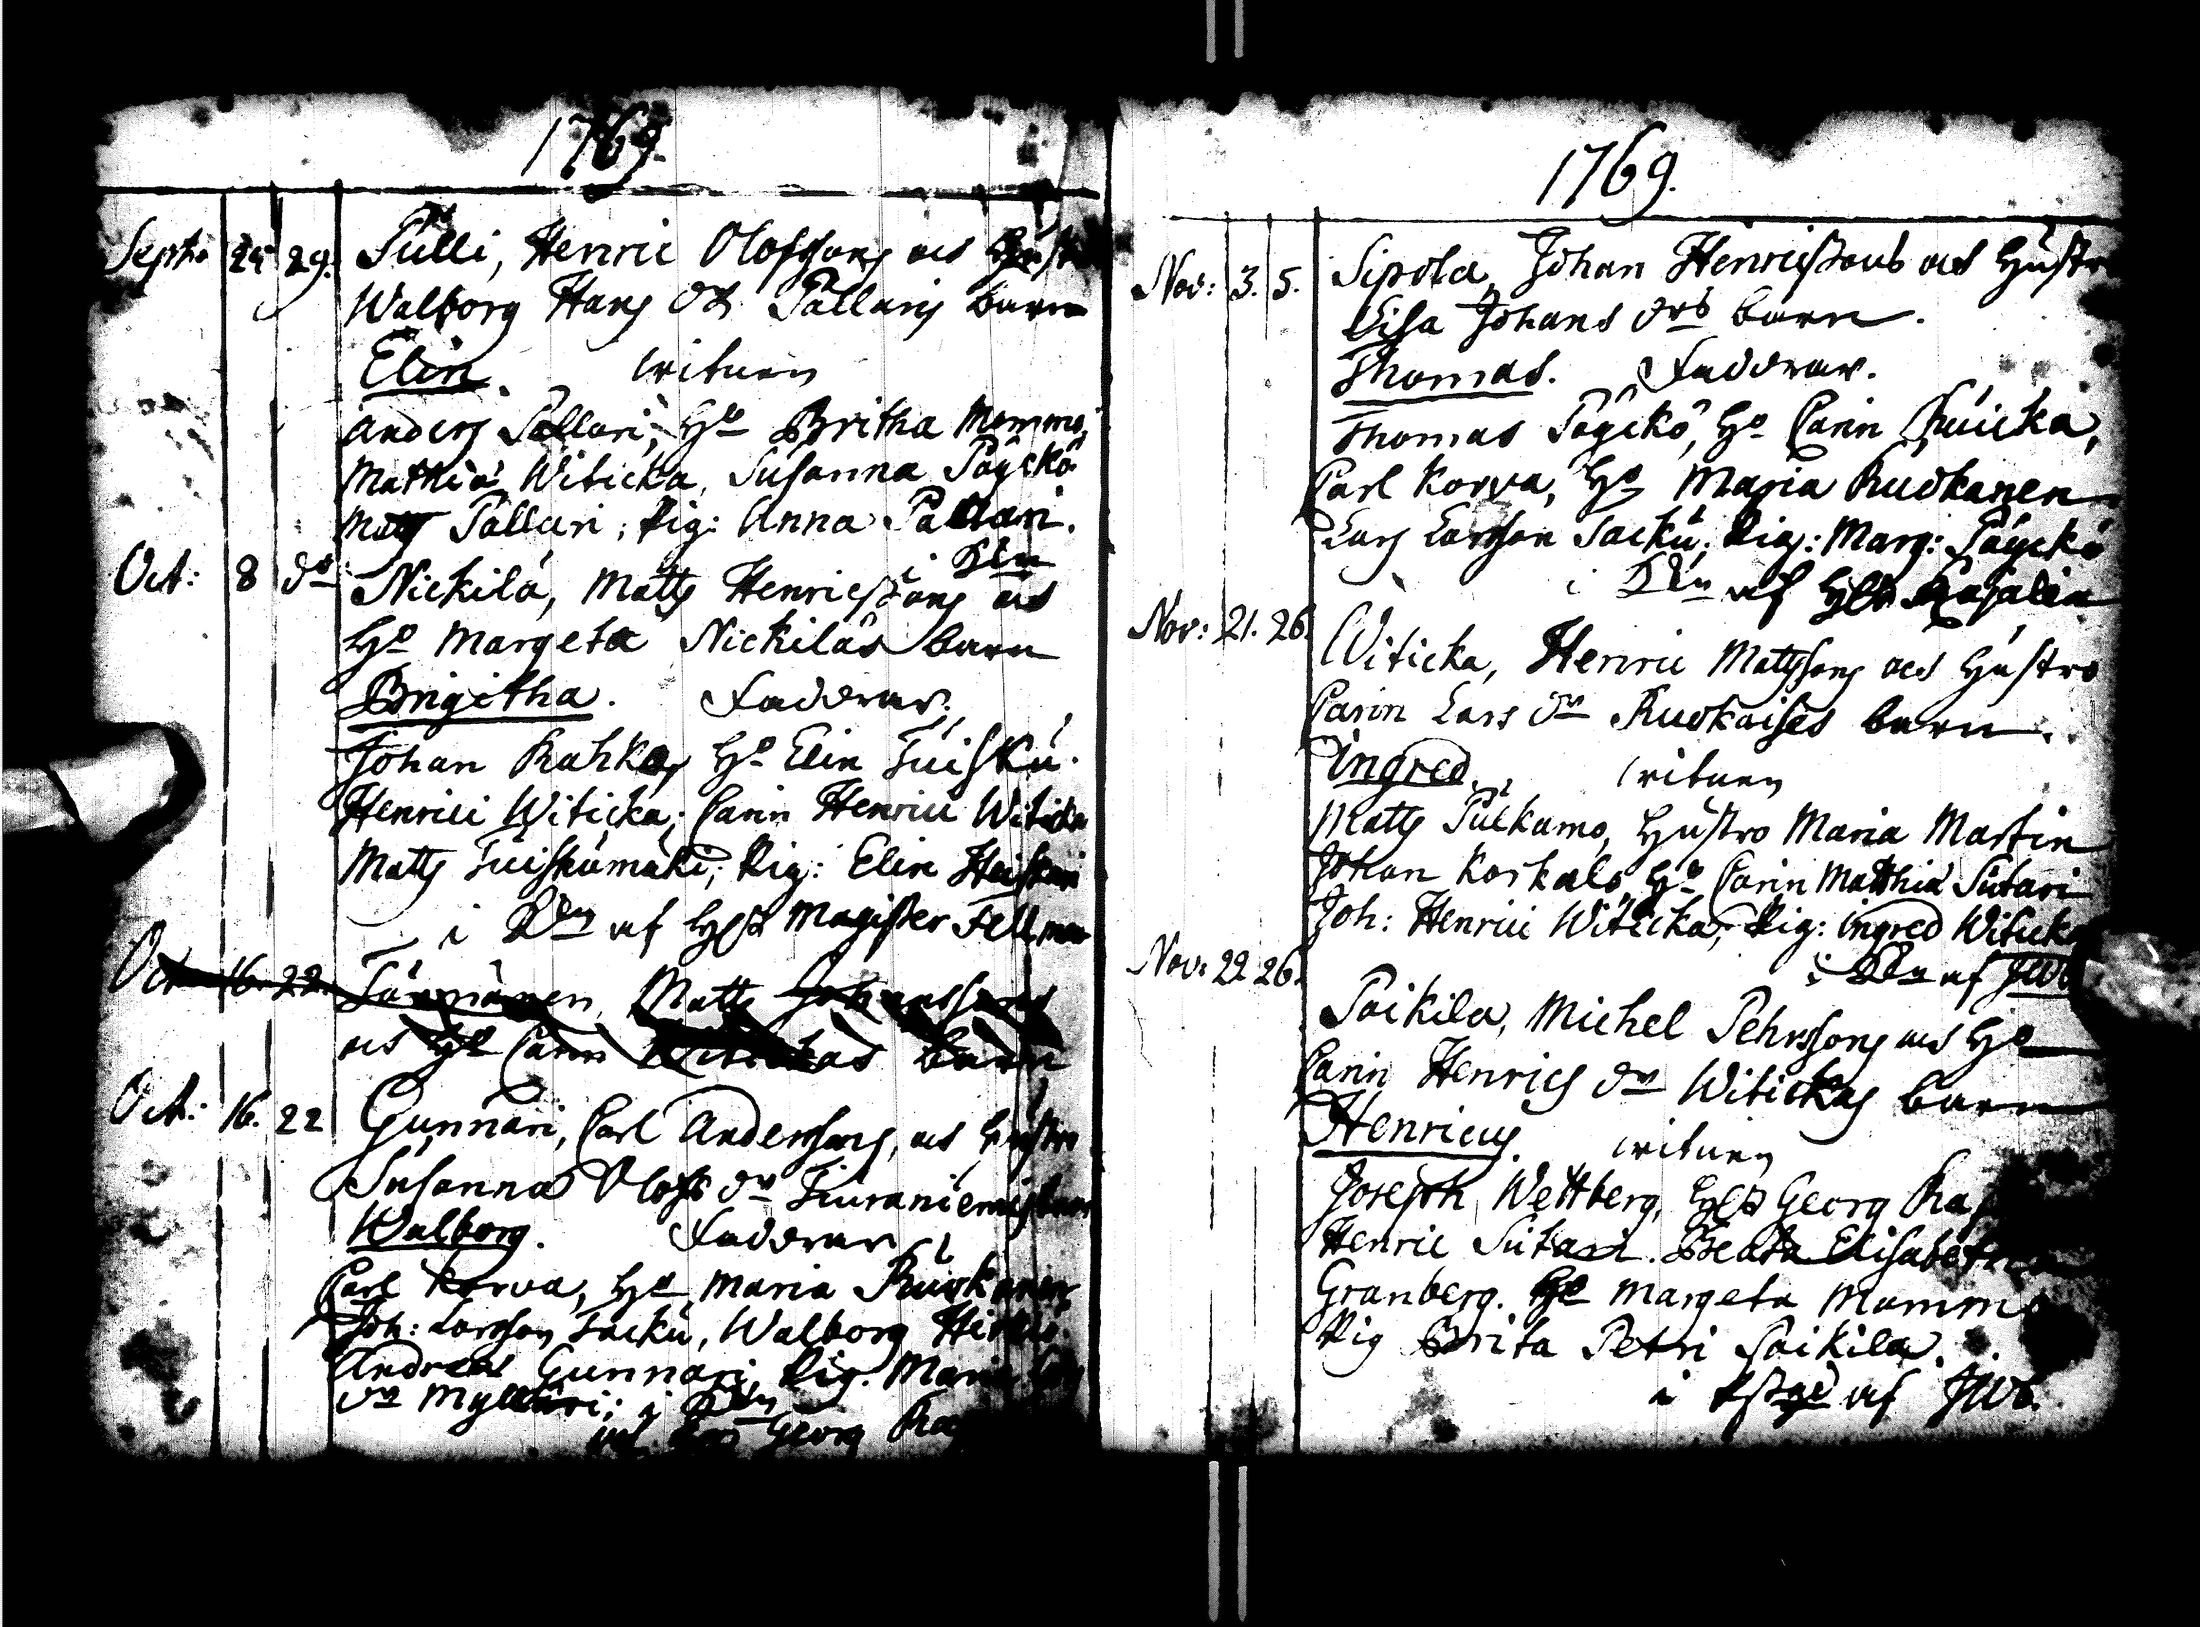 1769.
Septr 24 29. Pulli, Henric Olofssons och Hustr
Walborg Hans dr Pallaris barn
Elin. witnen
Anders Pallari, Ho Britha Mommo,
Mathia Witicka, Susanna Pöyckö
Matts Pallari, Pig: Anna Pallari.
i Kln
Oct: 8 do Nickilä, Matts Henricssons och
Ho Margeta Nickiläs barn
Brigitha. Faddrar.
Johan Rahko, Ho Elin Tuisku.
Henrici Witicka, Carin Henrici Witicka
Matts Tuiskumäki, Pig: Elin
i Kln af Magister Fellman
Oct 16. 22. Törmänen, Matts Johanssons
och Ho Carin Witickas barn
Oct: 16. 22 Gunnari, Carl Anderssons, och Hustru
Susanna Olofs dr Tiuraniemis barn
Walborg. Faddrar
Carl Korva, Ho Maria Ruokanen
Joh: Larsson Tacku, Walborg
Andreas Gunnari, Pig. Maria
dr Myllari; i Kln
af Georg
1769.
Nov: 3. 5. Sipola, Johan Henricssons och Hustr
Lisa Johans drs barn.
Thomas. Faddrar.
Thomas Pöyckö, Ho Carin
Carl Korva, Ho Maria Ruokanen
Lars Larsson Tacku, Pig: Marg: Pöyckö
i Kln af
Nov: 21. 26. Witicka, Henric Mattssons och Hustro
Carin Lars dr Ruokaises barn.
Ingred. witnen
Matts Pulkamo, Hustro Maria Martin
Johan Korkalo, Ho Carin Matthia Sutari
Joh: Henrici Witicka, Pig: Ingred Witicka
i Kln af JWb
Nov: 22 26. Paikila, Michel Pehrssons och Ho
Carin Henrics dr Witickas barn
Henricus. witnen
Joseph Wettberg, Georg
Henric Sutari. Beata Elisabeth
Granberg. Ho Margeta Mommo
Pig Brita Petri Paikila.
i af JWb.